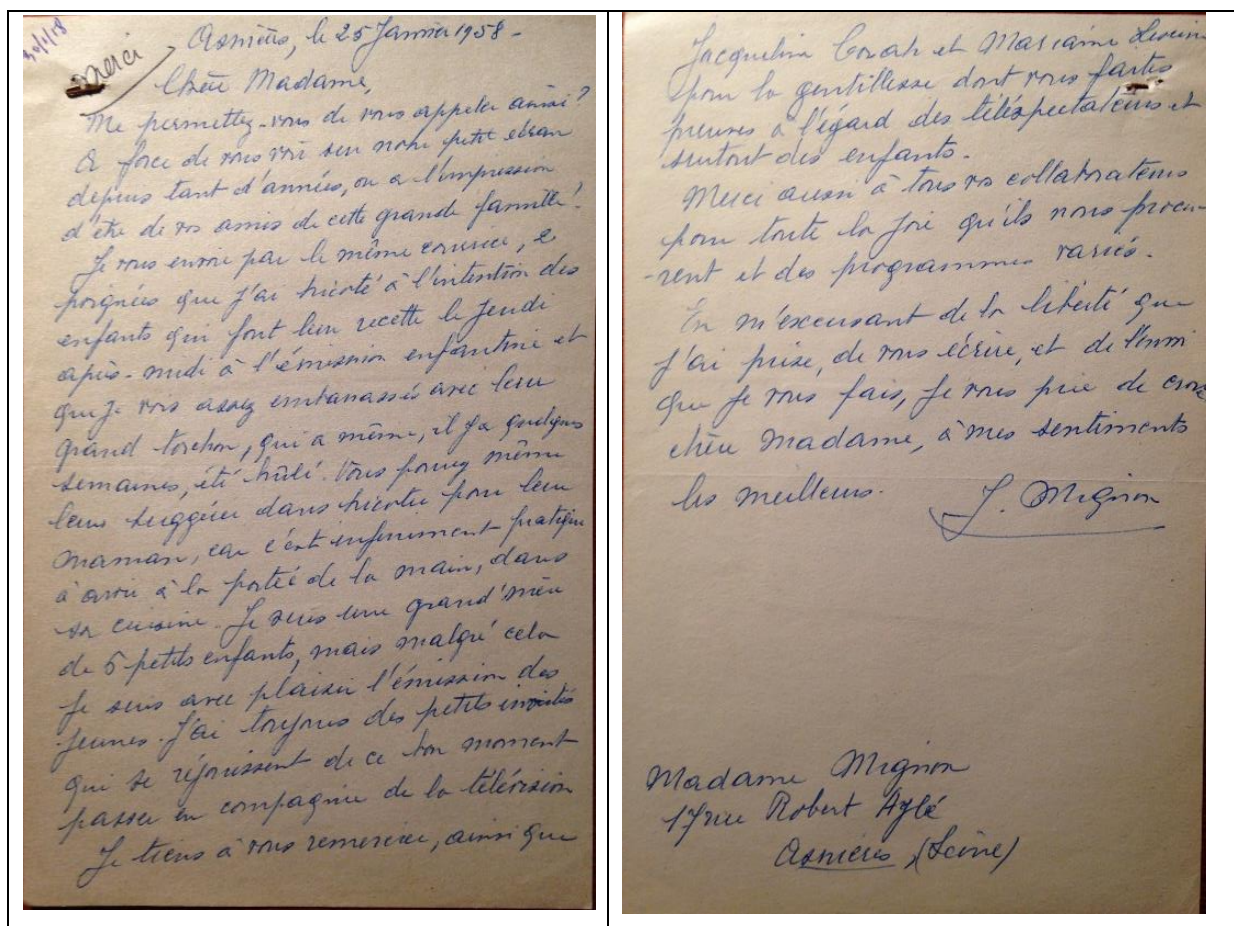 merci
Asnières, le 25 Janvier 1958 -
Chère Madame,
Me permettez-vous de vous appeler ainsi?
A force de vous voir sur notre petit écran
depuis tant d'années, on a l'impression
d'être de vos amis de cette grande famille!
Je vous envoie par le même courrier, 2
poignées que j'ai tricoté à l'intention des
enfants qui font leur recette le Jeudi
après-midi à l'émission enfantine et
que je vois assez embarrassés avec leur
grand torchon, qui a même, il y a quelques
semaines, été brûlé. Vous pouvez même
leur suggérer dans tricoter pour leur
maman, car c'est infiniment pratique
à avoir à la portée de la main, dans
sa cuisine. Je suis une grand'mère
de 5 petits enfants, mais malgré cela
je suis avec plaisir l'émission des
jeunes. J'ai toujours des petits invités
qui se réjouissent de ce bon moment
passer en compagnie de la télévision
Je tiens à vous remercier, ainsi que
Jacqueline et
pour la gentillesse dont vous faites
preuves à l'égard des téléspectateurs et
surtout des enfants.
Merci aussi à tous vos collaborateurs
pour toute la joie qu'ils nous procu-
-rent et des programmes variés.
En m'excusant de la liberté que
j'ai prise, de vous écrire, et de l'envoi
que je vous fais, je vous prie de croire
chère Madame, à mes sentiments
les meilleurs. J. Mignon
Madame Mignon
17 rue Robert
Asnières, (Seine)